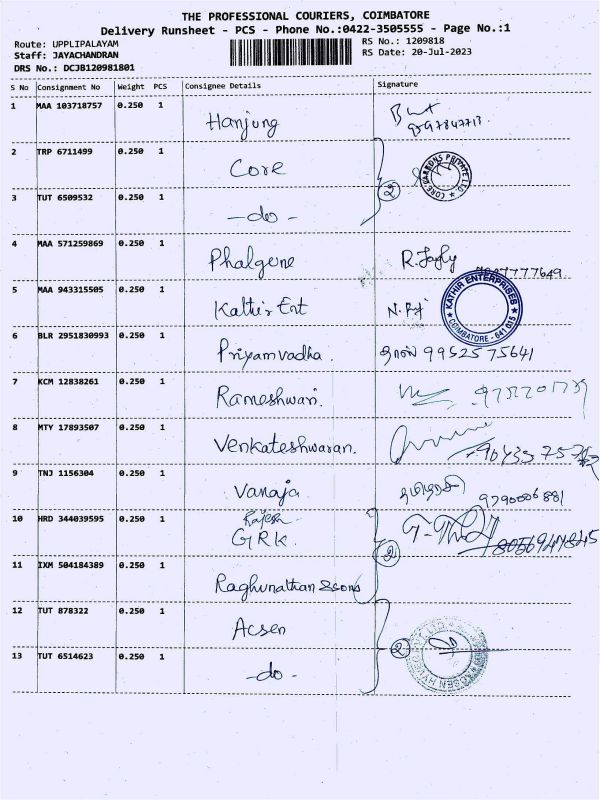 THE PROFESSIONAL COURIERS, COIMBATORE
Delivery Runsheet - PCS - Phone No.:0422-3505555 - Page No.:1
Route: UPPLIPALAYAM RS No.: 1209818
Staff: JAYACHANDRAN RS Date: 20-Jul-2023
DRS No.: DCJB120981801
S No Consignment No Weight PCS Consignee Details Signature
1 MAA 103718757 0.250 1 Hanjung
2 TRP 6711499 0.250 1 Core 2
3 TUT 6509532 0.250 1 -do-
4 MAA 571259869 0.250 1 Phalgene
5 MAA 943315505 0.250 1 Kathir Ent KATHIR ENTERPRISES COIMBATORE - 641 015
6 BLR 2951830993 0.250 1 Priyamvadha. 9952575641
7 KCM 12838261 0.250 1 Rameshwari.
8 MTY 17893507 0.250 1 Venkateshwaran.
9 TNJ 1156304 0.250 1 Vanaja 9790006881
10 HRD 344039595 0.250 1 Rajesh GRK. 8056947845
2
11 IXM 504184389 0.250 1 Raghunathan & sons
12 TUT 878322 0.250 1 Acsen
2
13 TUT 6514623 0.250 1 -do-